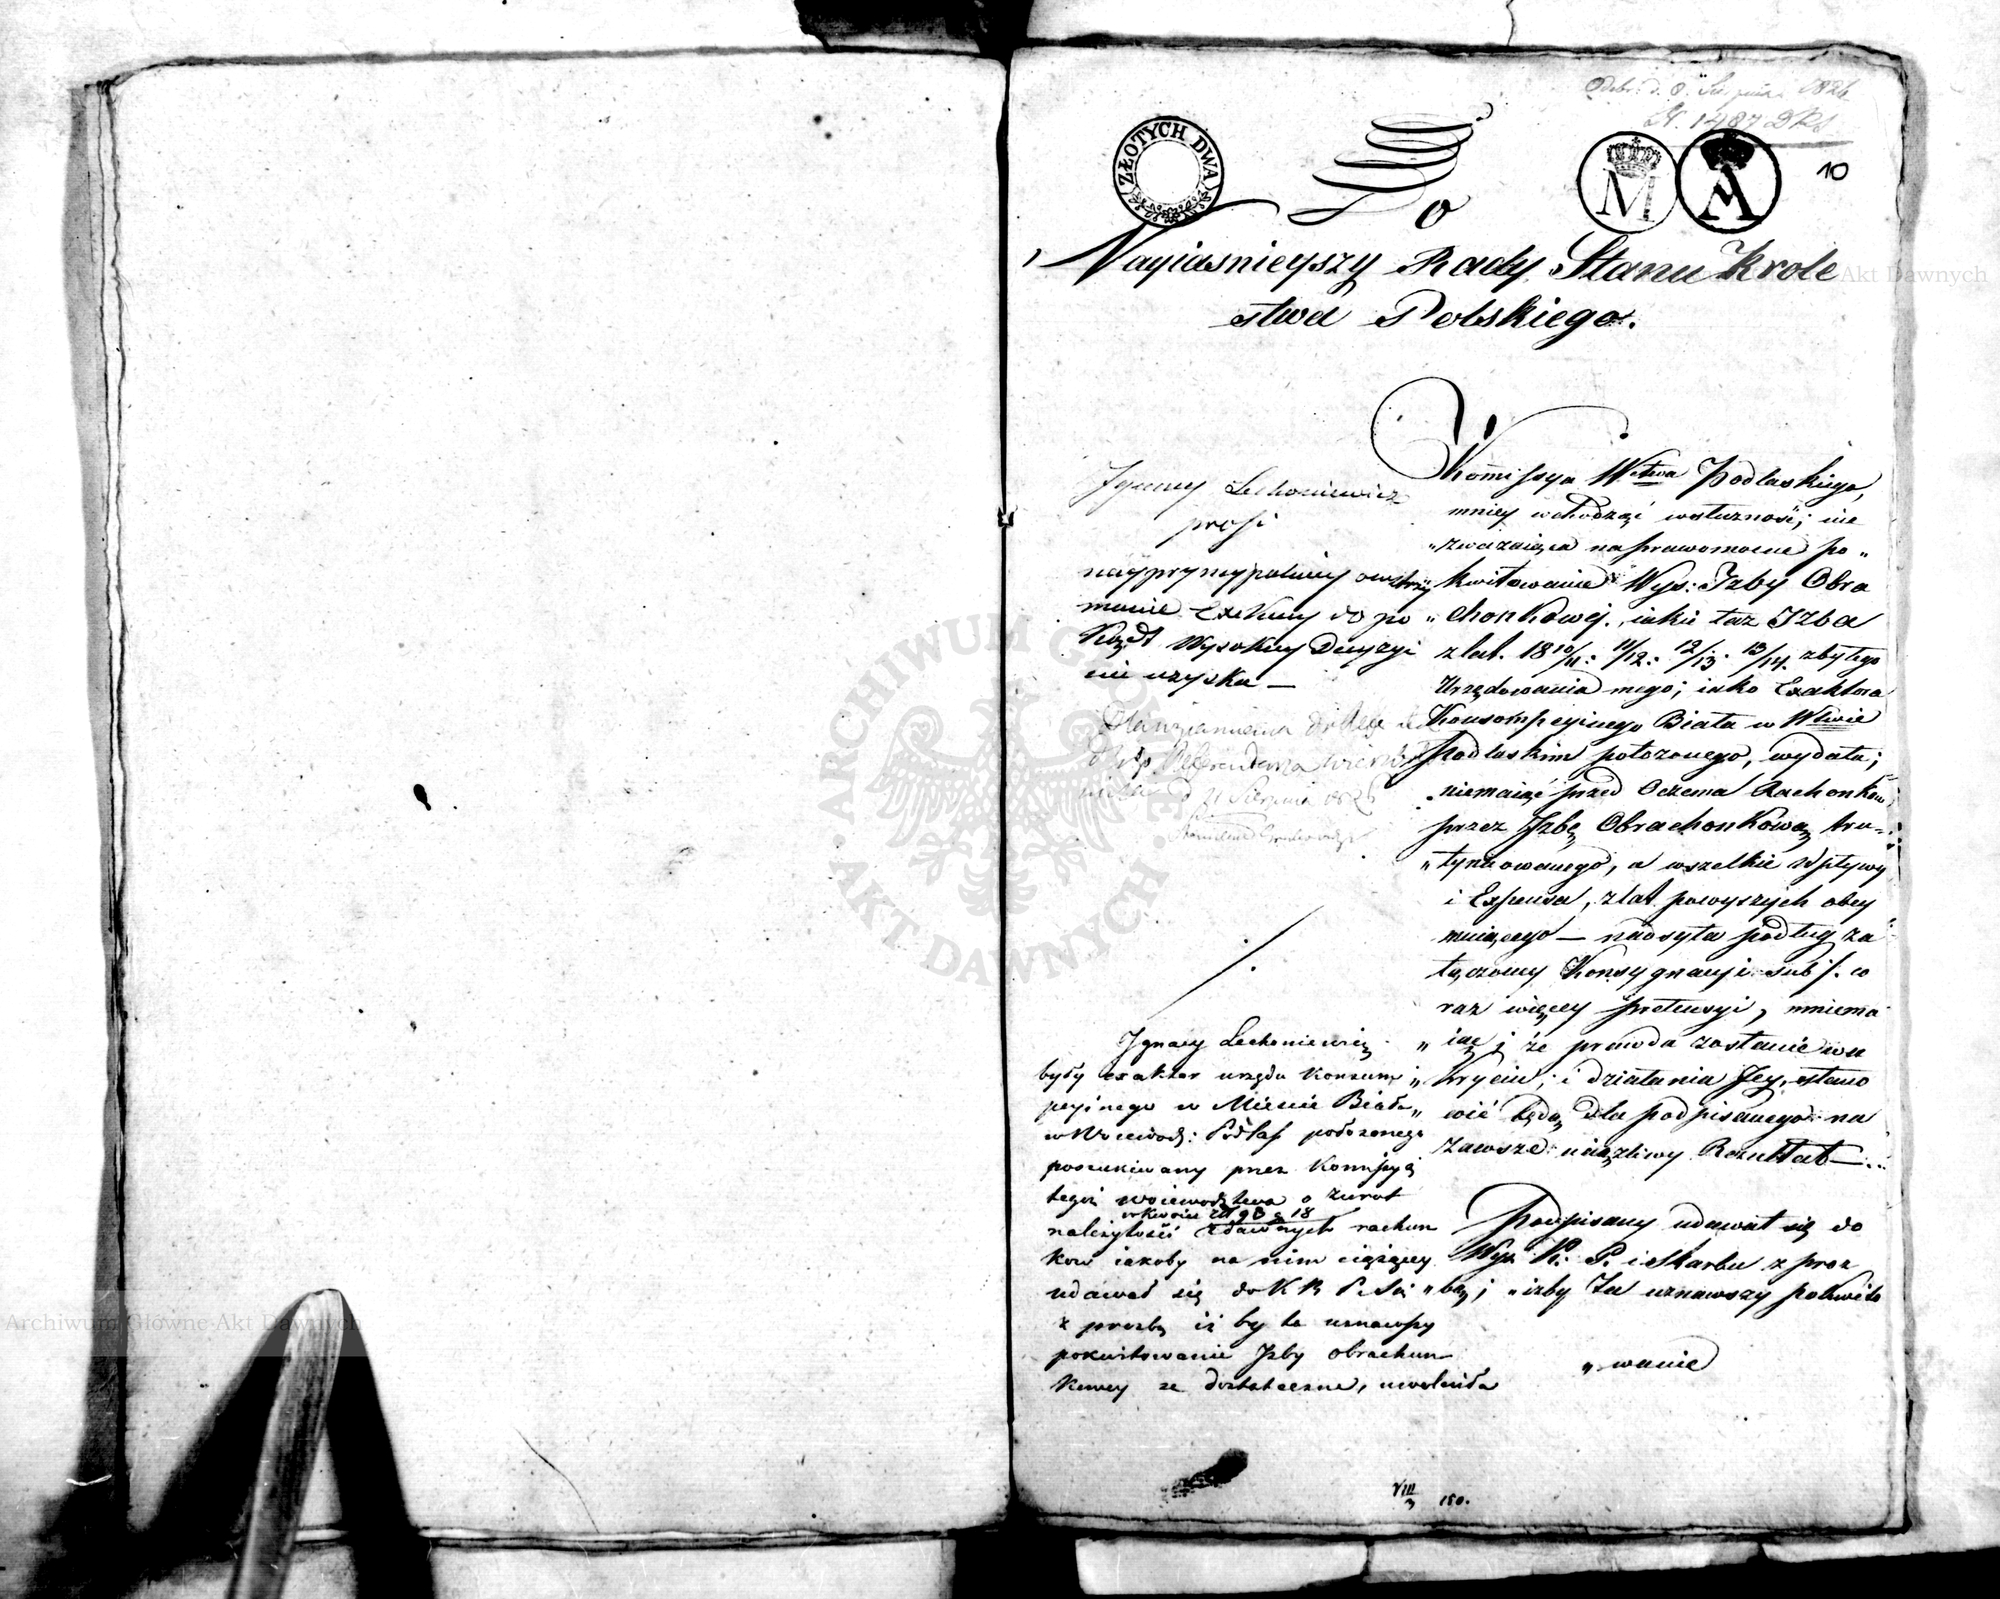 Odebr. d. 8 Sierpnia 1826
N. 1487 DKS
ZŁOTYCH DWA
M
A
10
Do
Nayiasnieyszy Rady Stanu Krole
stwa Polskiego.
Ignacy Lechoniewicz
prosi
nayprzyncypalniey owstrzy
manie Exekucyi do po
Kąd Wysokiey Decyzyi
nie uzyska —
d 11 Sierpnia 1826
Ignacy Lechoniewicz
były exaktor urzędu Konsum
pcyinego w Mieście Biała
w Woiewodz: Podlas położonego
poszukiwany przez Kommissyą
tegoż woiewodztwa o zwrot
w kwocie zł 98 g 18
należytości zdawnych rachun
kow iakoby na nim ciążącey
udawał się do K R P. i S.
z prozbą iż by ta uznawszy
pokwitowanie Izby obrachun
kowey za dostateczne, uwolniła
Kommissya Wctwa Podlaskiego,
mniey wchodząc w słuszność; nie
zważaiąca na prawomocne po„
kwitowanie Wys: Izby Obra
chonkowej, iakie taż Izba
z lat. 18 10/11: 11/12: 12/13: 13/14. zbytego
Urzędowania mego; iako Exaktora
Konsompcyinego Biała w Wctwie
Podlaskim położonego, wydała;
niemaiąc przed Oczema Rachonków
przez Izbę Obrachonkową tru„
„tynowanego, a wszelkie Wpływy
i Expensa, z lat powyszych obey
muiącego — nadsyła podług za
łączoney Konsygnacyi sub /. co
raz więcey pretensyi, mniema
iąc; że prawda zostanie w u
kryciu; i działania Jey, stano
wić będą dla podpisanego na
zawsze uciążliwy Rezultat —
Podpisany udawał się do
Wys: K: P. i Skarbu z proz
„bą; „izby Ta uznawszy pokwito
„wanie
VIII
3
150.
ARCHIWUM GŁÓWNE AKT DAWNYCH
Archiwum Główne Akt Dawnych
Akt Dawnych